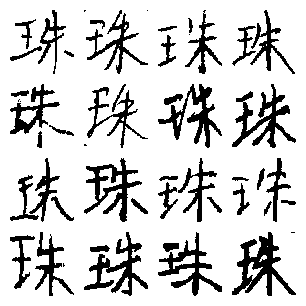 珠珠珠珠
珠珠珠珠
珠珠珠珠
珠珠珠珠